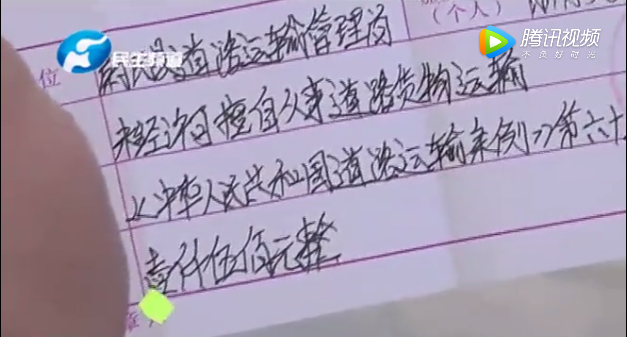 (个人)
民生频道
腾讯视频
不负好时光
位 道路运输管理局
未经许可擅自从事道路货物运输
《中华人民共和国道路运输条例》第六十
壹仟伍佰元整
章